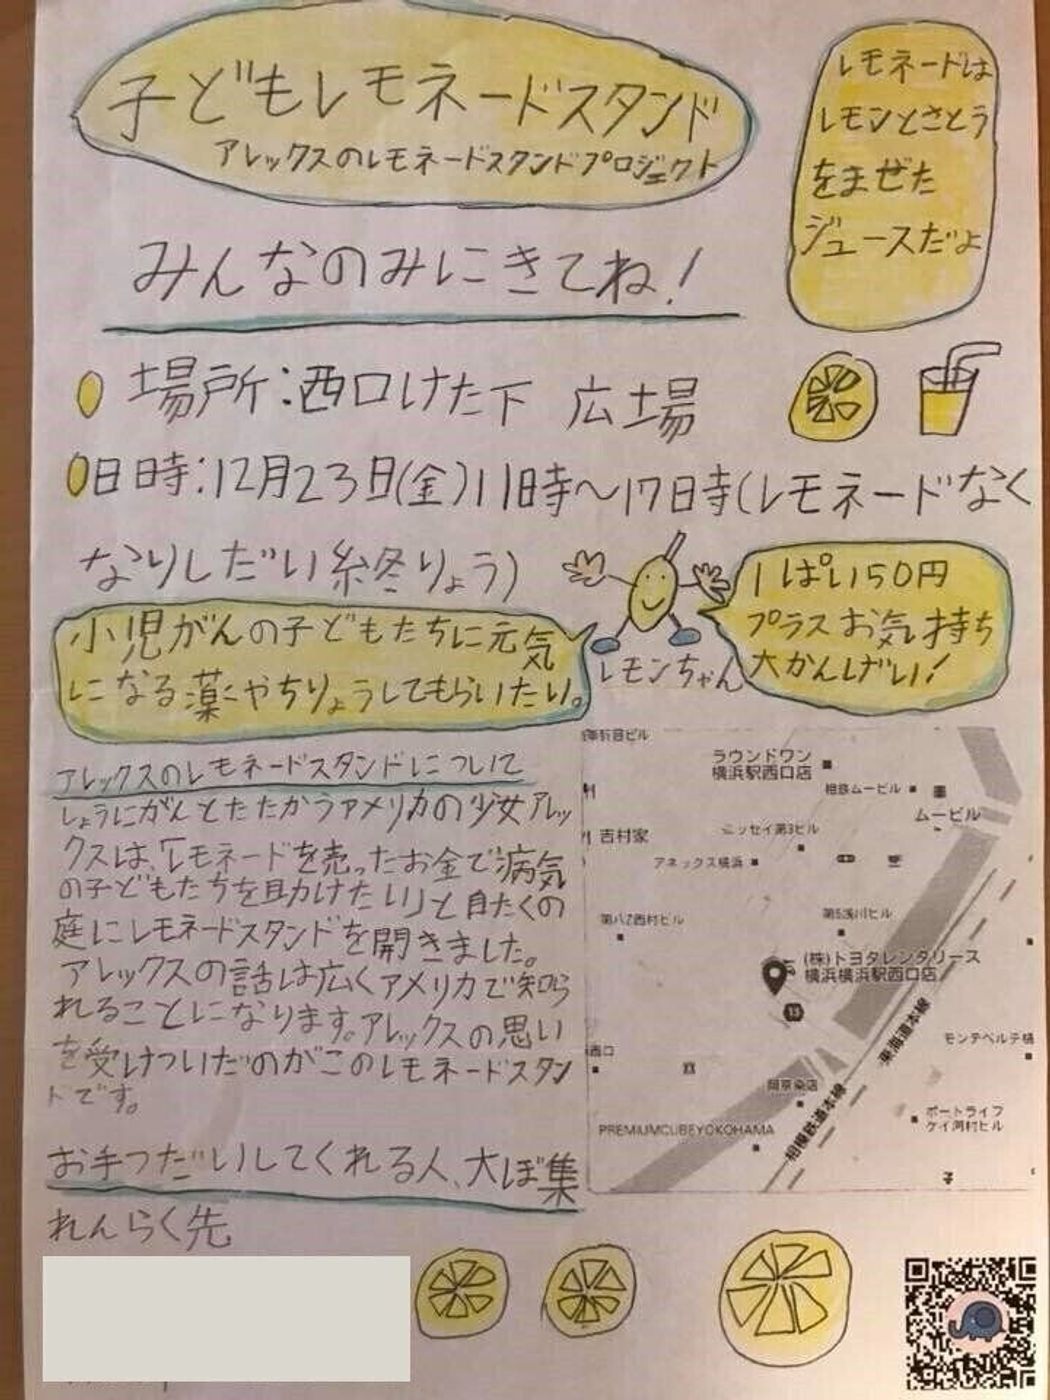 子どもレモネードスタンド
アレックスのレモネードスタンドプロジェクト
レモネードは
レモンとさとう
をまぜた
ジュースだよ
みんなのみにきてね!
場所:西口けた下 広場
日時:12月23日(金)11時〜17時(レモネードなく
なりしだい終りょう)
小児がんの子どもたちに元気
になる薬やちりょうしてもらいたい。
レモンちゃん
1ぱい50円
プラスお気持ち
大かんげい!
アレックスのレモネードスタンドについて
しょうにがんとたたかうアメリカの少女アレッ
クスは、「レモネードを売ったお金で病気
の子どもたちを助けたい」と自たくの
庭にレモネードスタンドを開きました。
アレックスの話は広くアメリカで知ら
れることになります。アレックスの思い
を受けついだのがこのレモネードスタン
ドです。
ラウンドワン
横浜駅西口店
相鉄ムービル
ムービル
吉村家
ニッセイ第3ビル
アネックス横浜
第八Z西村ビル
第5浅川ビル
(株)トヨタレンタリース
横浜横浜駅西口店
13
東海道本線
モンテベルテ横
西口
岡京染店
相模鉄道本線
ポートライフ
ケイ河村ビル
PREMIUMCUBEYOKOHAMA
お手つだいしてくれる人、大ぼ集
れんらく先